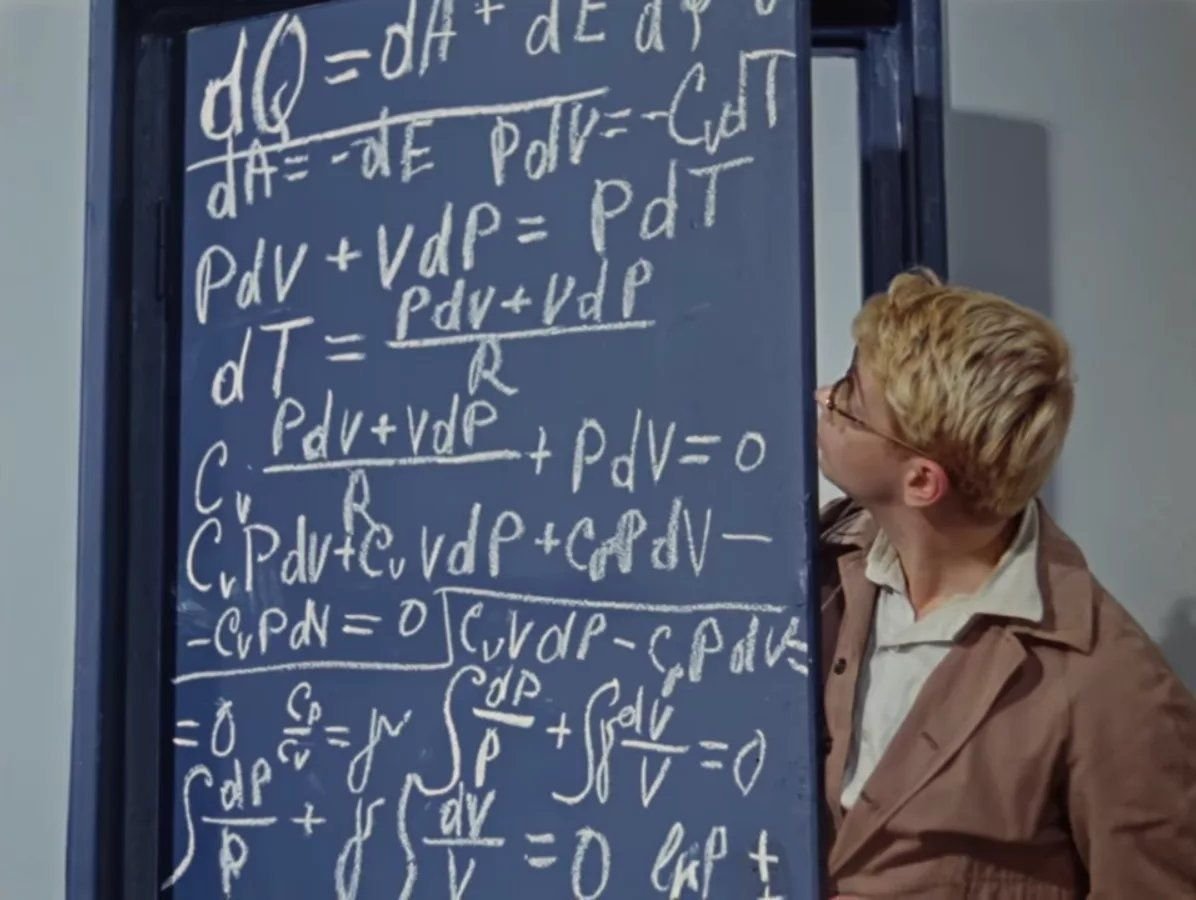 dQ = dA + dE dφ
dA = -dE PdV = -CvdT
PdV + VdP = PdT
dT = (PdV + VdP)/R
Cv (PdV + VdP)/R + PdV = 0
CvPdV + CvVdP + CpPdV —
-CvPdV = 0 CvVdP - CpPdV =
= 0 Cp/Cv = γ ∫dP/P + ∫γ dV/V = 0
∫dP/P + γ ∫dV/V = 0 lnP +